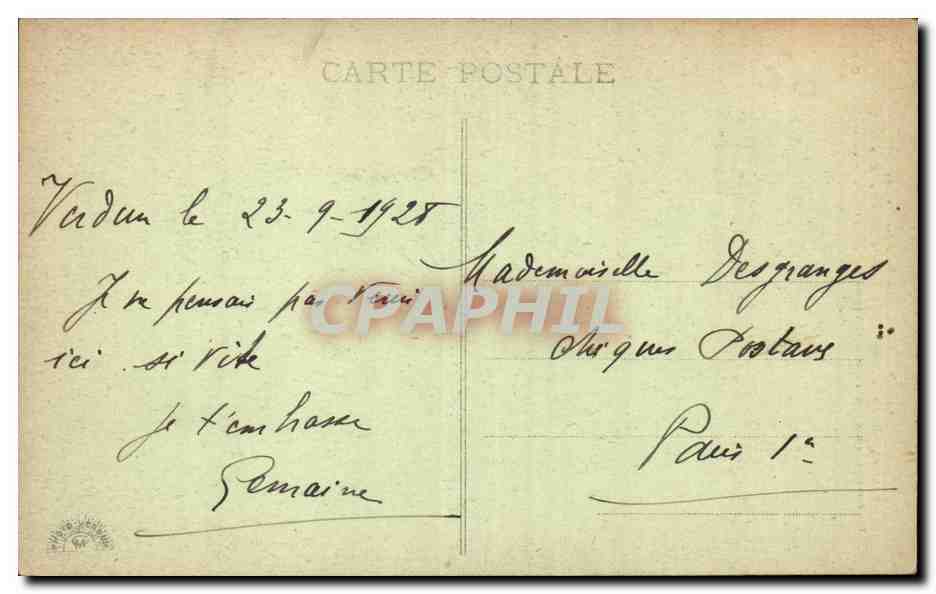 CARTE POSTALE
Verdun le 23-9-1928
Je ne pensais pas venir
ici si vite
Je t'embrasse
Germaine
Mademoiselle Desgranges
chèques Postaux
Paris 1er
CPAPHIL